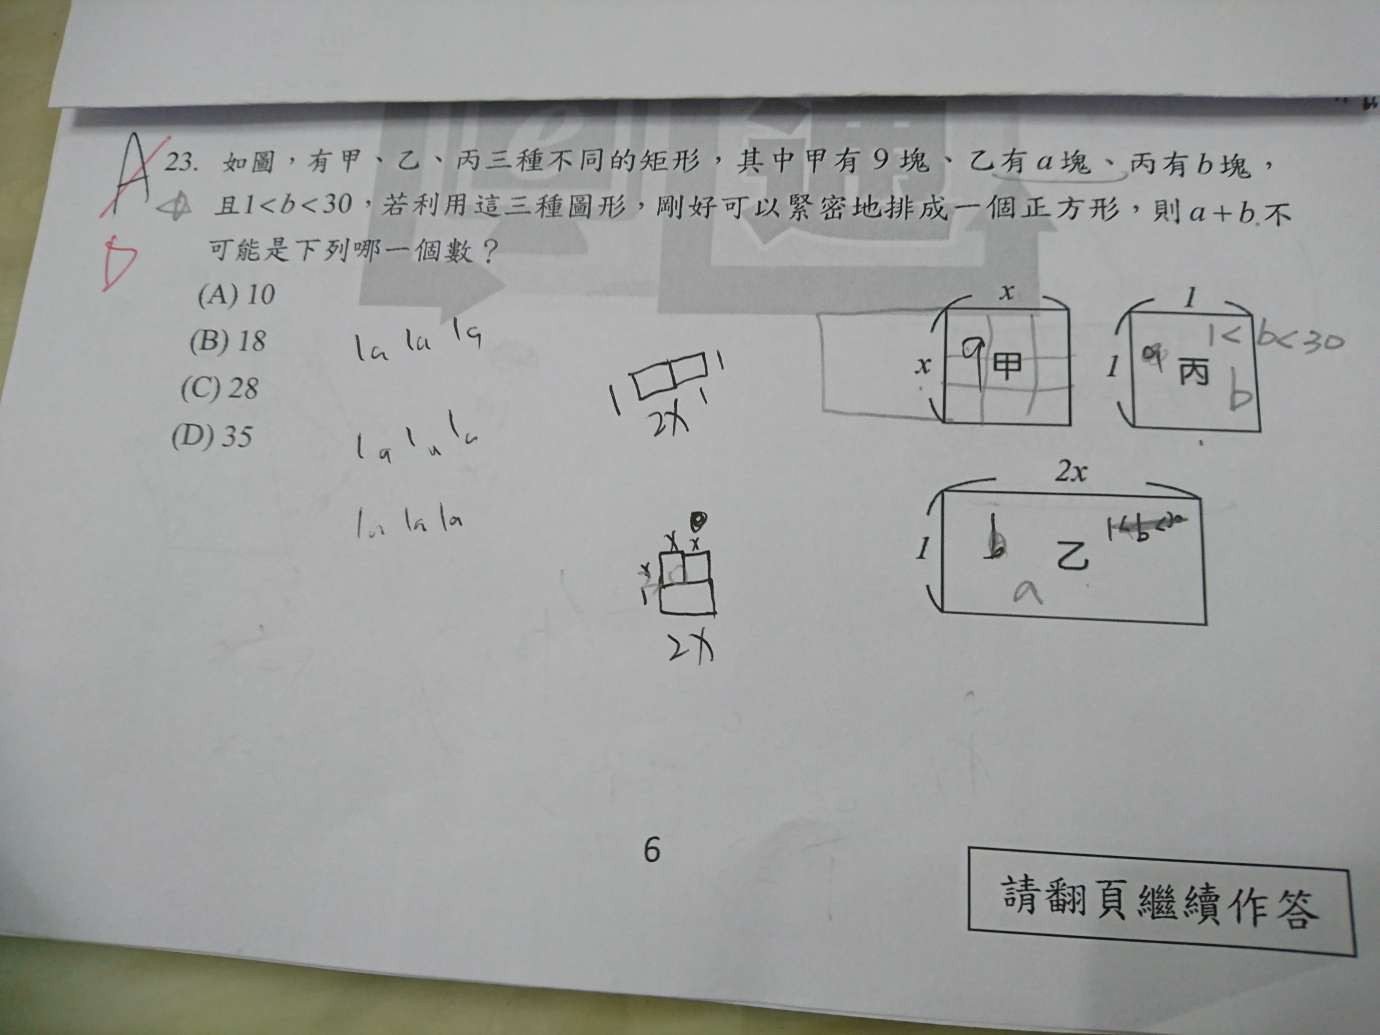 23. 如圖，有甲、乙、丙三種不同的矩形，其中甲有9塊、乙有a塊、丙有b塊，
且1<b<30，若利用這三種圖形，剛好可以緊密地排成一個正方形，則a+b不
可能是下列哪一個數？
(A) 10
(B) 18
(C) 28
(D) 35
A
D
通
x
x
9
甲
1
1
丙
1<b<30
b
2x
1
b
乙
1<b<30
a
1a 1a 1a
1a 1a 1a
1a 1a 1a
1
1
1
2x
x
x
x
1
2x
6
請翻頁繼續作答